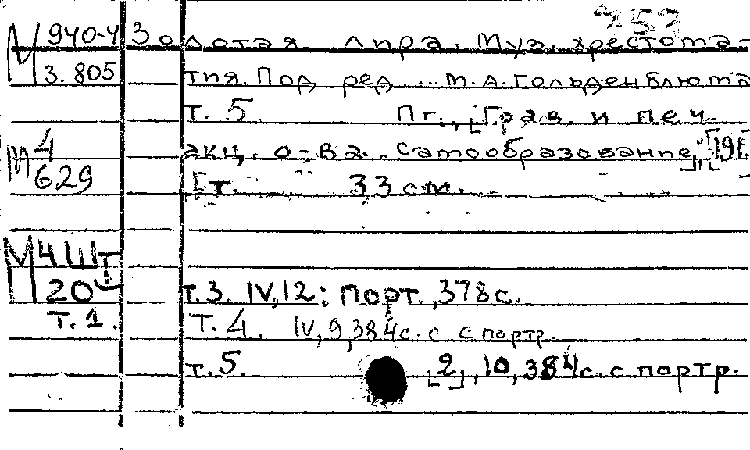 757
М 940-4 Золотая лира. Муз. хрестома-
3.805 тия. Под ред. М.А.Гольденблюма
т. 5 Пг., [Грав. и печ.
М 4 акц. о-ва "Самообразование", [191
629 т. 33 см.
М 4 Шт
20 т.3. IV, 12; порт., 378 с.
т. 1. т. 4. IV, 9, 384 с. с портр.
т. 5. [2], 10, 384 с. с портр.